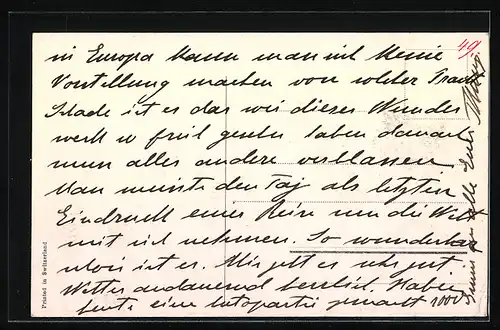 49.
in Europa kann man sich keine
Vorstellung machen von solcher Pracht
Schade ist es das wir dieses Wunder
werk so früh gesehen haben danach
muss alles andere verblassen
Man müsste den Taj als letzten
Eindruck einer Reise um die Welt
mit sich nehmen. So wunderbar
schön ist er. Uns geht es sehr gut.
Wetter andauernd herrlich. Haben
heute eine Autopartie gemacht 1000
alle Euer
Printed in Switzerland